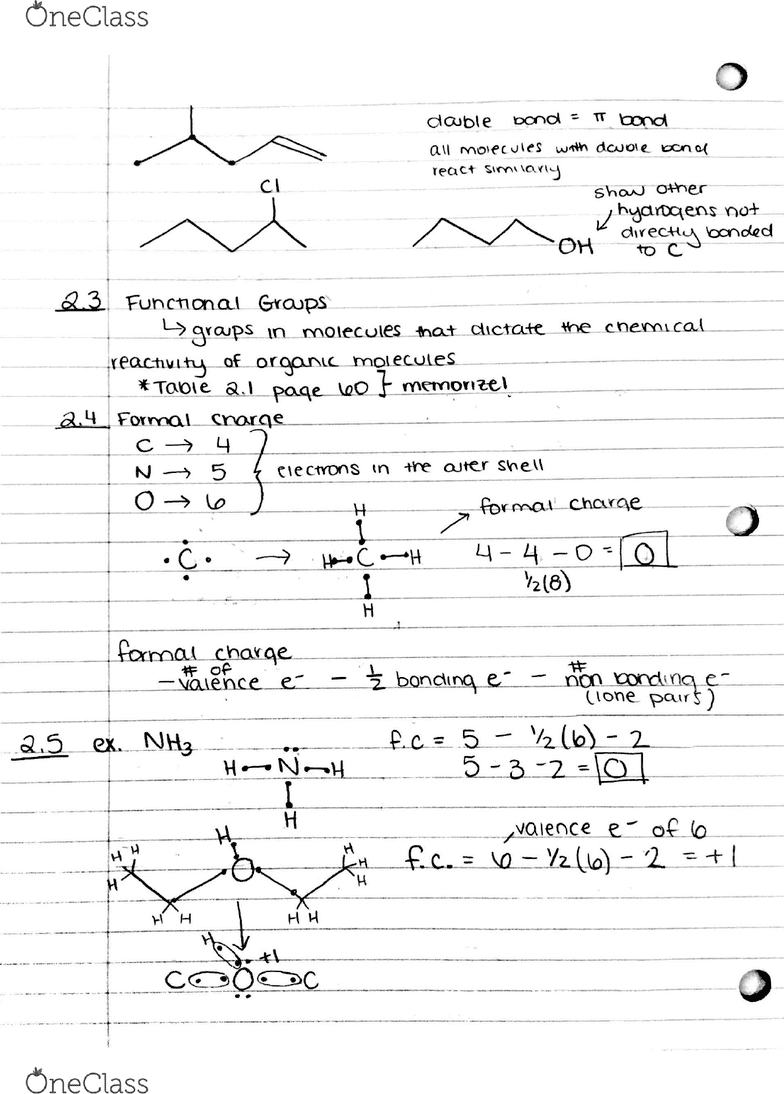 OneClass
double bond = π bond
all molecules with double bond
react similarly
Cl
show other
hydrogens not
directly bonded
to C
OH
2.3 Functional Groups
↳ groups in molecules that dictate the chemical
reactivity of organic molecules
*Table 2.1 page 60 } memorize!
2.4 Formal charge
C → 4
N → 5 } electrons in the outer shell
O → 6
H
formal charge
·C· → H C H 4 - 4 - 0 = 0
1/2(8)
H
formal charge
- # of valence e⁻ - 1/2 bonding e⁻ - # non bonding e⁻
(lone pairs)
2.5 ex. NH₃ f.c = 5 - 1/2(6) - 2
H N H 5 - 3 - 2 = 0
H
valence e⁻ of 6
H
H H O H H f.c. = 6 - 1/2(6) - 2 = +1
H H
H H H H
H +1
C O C
OneClass